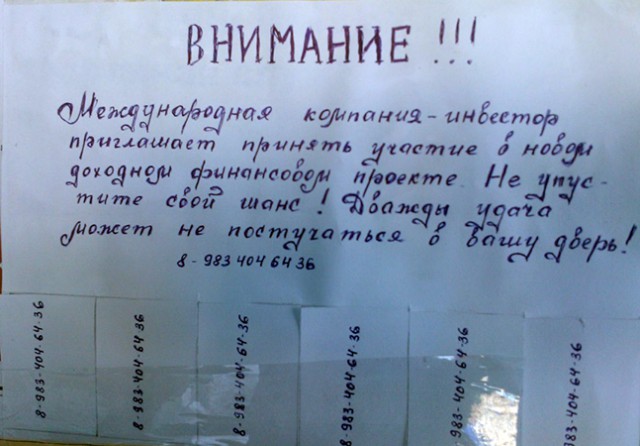 ВНИМАНИЕ !!!
Международная компания-инвестор
приглашает принять участие в новом
доходном финансовом проекте. Не упус-
тите свой шанс! Дважды удача
может не постучаться в вашу дверь!
8-983 404 64 36
8-983-404-64-36
8-983-404-64-36
8-983-404-64-36
983-404-64-36
983-404-64-36
983-404-64-36